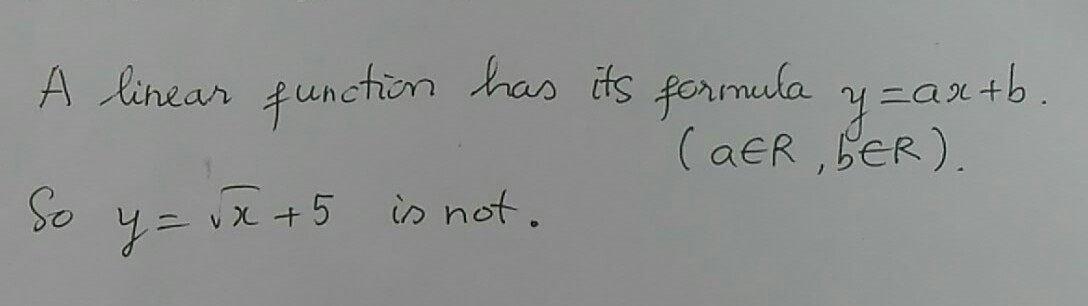 A linear function has its formula y = ax + b.
(a∈R, b∈R).
So y = √x + 5 is not.